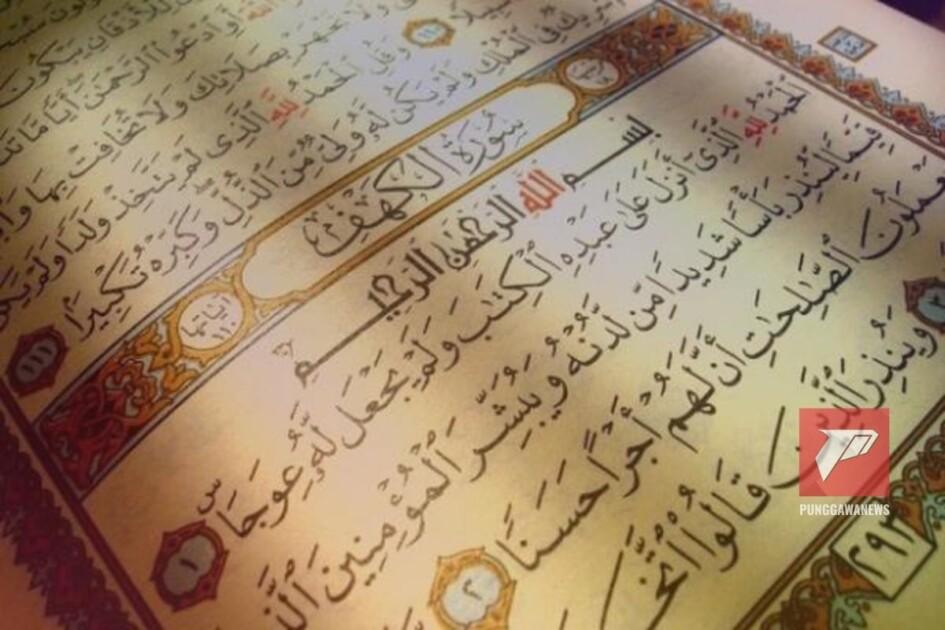 لِلْأَذْقَانِ يَبْكُونَ
ٱللَّهَ أَوِ ٱدْعُوا۟ ٱلرَّحْمَٰنَ أَيًّا مَّا
وَلَا تَجْهَرْ بِصَلَاتِكَ وَلَا تُخَافِتْ بِهَا
سَبِيلًا ١١٠ وَقُلِ ٱلْحَمْدُ لِلَّهِ ٱلَّذِى لَمْ يَتَّخِذْ وَلَدًا وَلَمْ يَكُن
شَرِيكٌ فِى ٱلْمُلْكِ وَلَمْ يَكُن لَّهُۥ وَلِىٌّ مِّنَ ٱلذُّلِّ وَكَبِّرْهُ تَكْبِيرًۢا ١١١
سُورَةُ الكَهْفِ
آيَاتُهَا ١١٠
بِسْمِ ٱللَّهِ ٱلرَّحْمَٰنِ ٱلرَّحِيمِ
ٱلْحَمْدُ لِلَّهِ ٱلَّذِىٓ أَنزَلَ عَلَىٰ عَبْدِهِ ٱلْكِتَٰبَ وَلَمْ يَجْعَل لَّهُۥ عِوَجَاۜ ١
قَيِّمًا لِّيُنذِرَ بَأْسًا شَدِيدًا مِّن لَّدُنْهُ وَيُبَشِّرَ ٱلْمُؤْمِنِينَ
يَعْمَلُونَ ٱلصَّٰلِحَٰتِ أَنَّ لَهُمْ أَجْرًا حَسَنًا ٢
وَيُنذِرَ ٱلَّذِينَ قَالُوا۟ ٱتَّخَذَ
٢٩٣
PUNGGAWANEWS